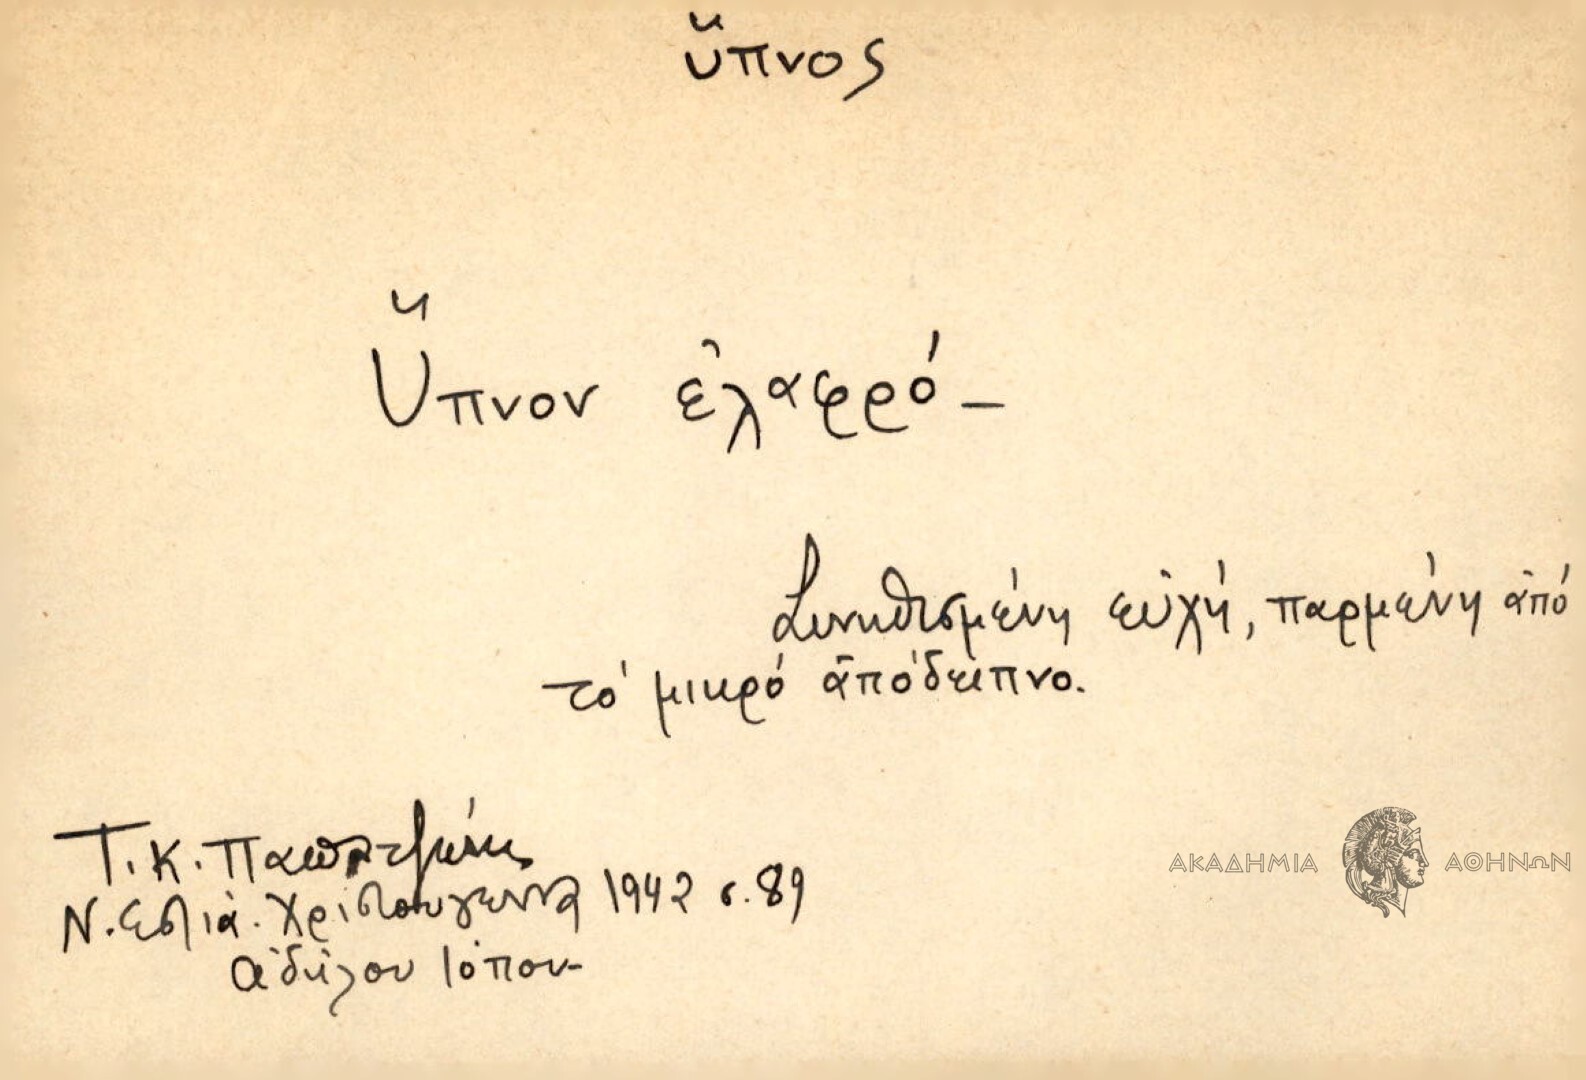 ὕπνος
Ὕπνον ἐλαφρό_
Συνηθισμένη εὐχή, παρμένη ἀπό
τό μικρό ἀπόδειπνο.
Τ. Κ. Παπατζώνης
Ν. Εστιά. Χριστουγεννα 1942 σ. 89
ἀδήλου τόπου-
ΑΚΑΔΗΜΙΑ ΑΘΗΝΩΝ